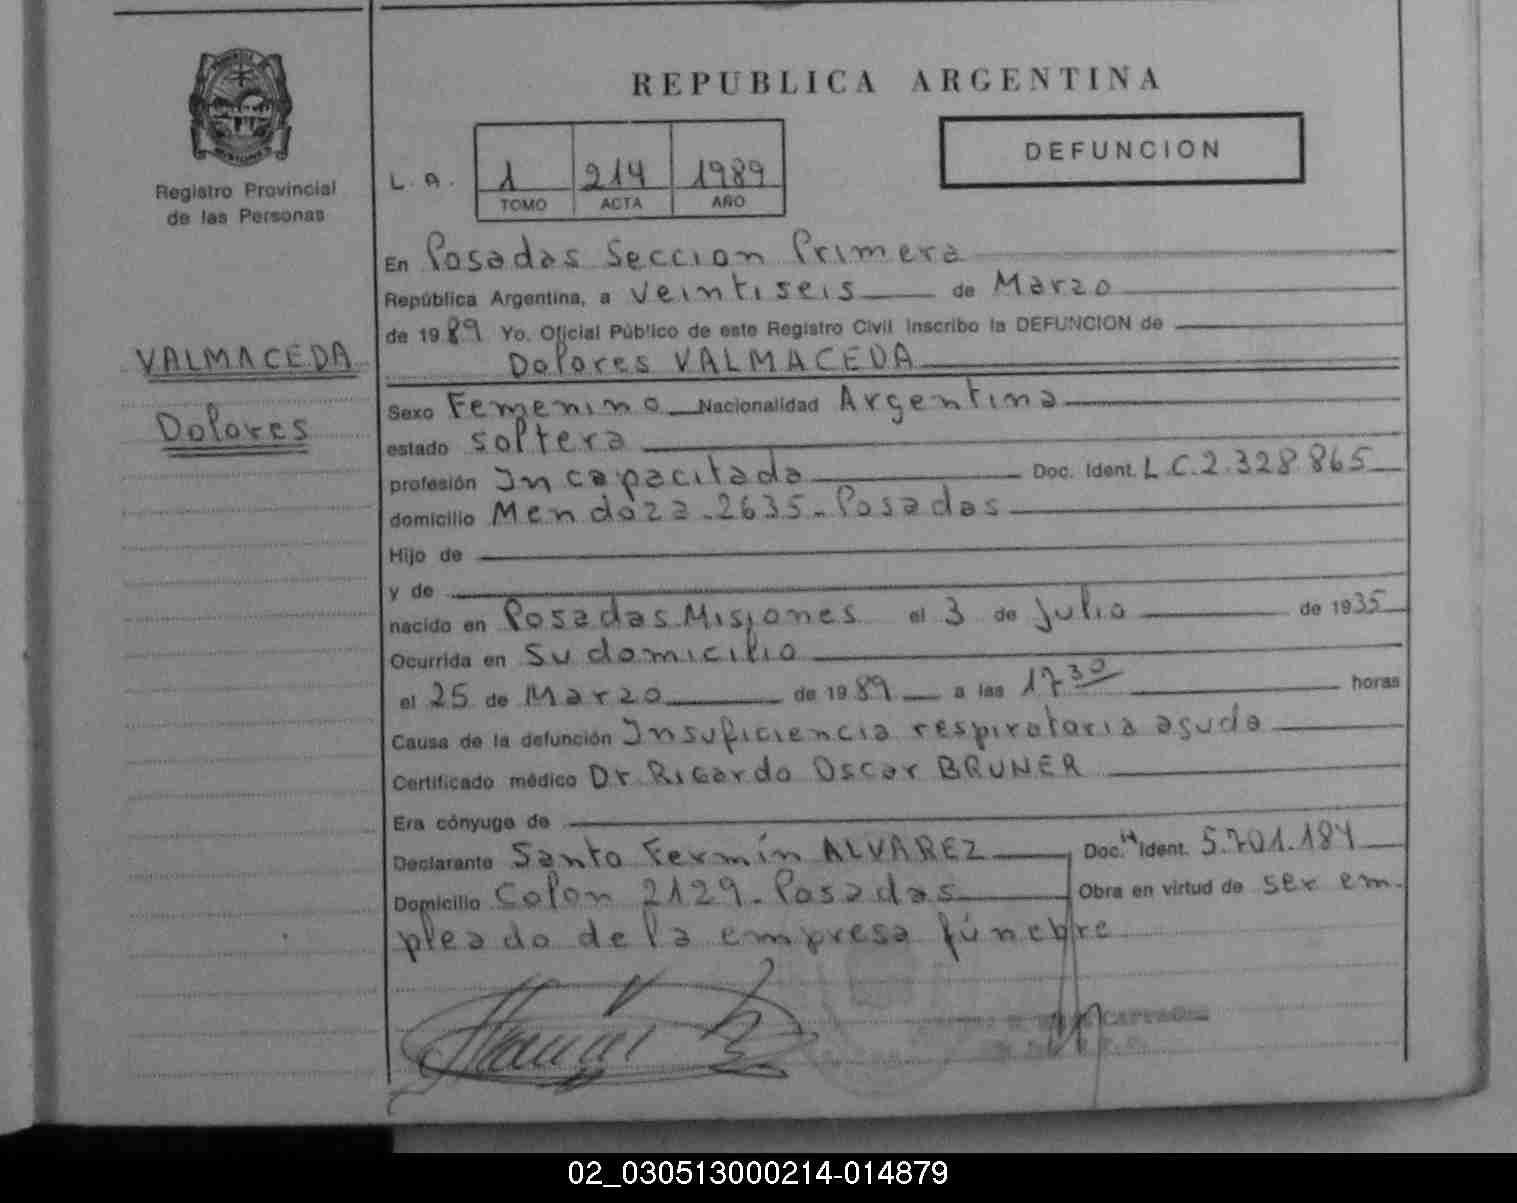 REPUBLICA ARGENTINA
DEFUNCION
Registro Provincial
de las Personas
L. A. 1 214 1989
TOMO ACTA AÑO
En Posadas Seccion Primera
República Argentina, a veintiseis de Marzo
de 1989 Yo, Oficial Público de este Registro Civil inscribo la DEFUNCION de
Dolores VALMACEDA
VALMACEDA
Dolores
Sexo Femenino Nacionalidad Argentina
estado soltera
profesión Incapacitada Doc. Ident. L C. 2.328.865
domicilio Mendoza-2635-Posadas
Hijo de
y de
nacido en Posadas Misiones el 3 de Julio de 1935
Ocurrida en Su domicilio
el 25 de Marzo de 1989 a las 17 30 horas
Causa de la defunción Insuficiencia respiratoria aguda
Certificado médico Dr. Ricardo Oscar BRUNER
Era cónyuge de
Declarante Santo Fermín ALVAREZ Doc. Ident. 5.701.184
Domicilio Colon 2129-Posadas Obra en virtud de ser em-
pleado de la empresa fúnebre
02_030513000214-014879